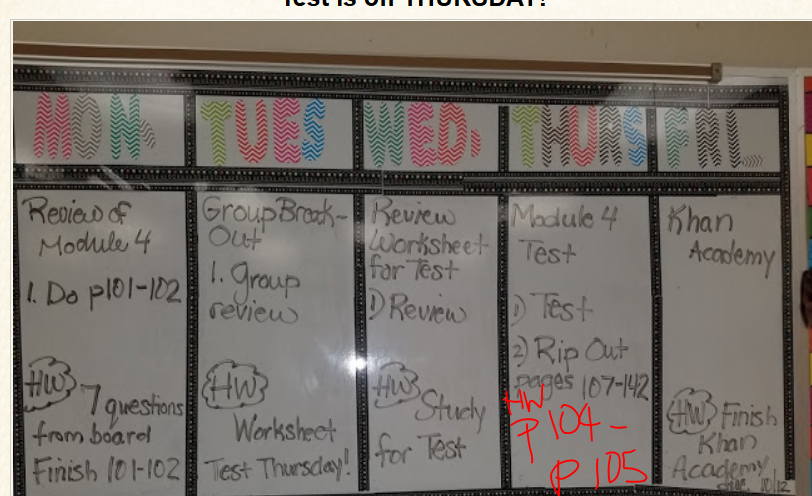 Test is on THURSDAY!
MON.
TUES
WED.
THURS
FRI.
Review of
Module 4
1. Do p101-102
HW 7 questions
from board
Finish 101-102
Group Break-
Out
1. group
review
HW
Worksheet
Test Thursday!
Review
Worksheet
for Test
1) Review
HW Study
for Test
Module 4
Test
1) Test
2) Rip Out
pages 107-142
HW
P 104-
P 105
Khan
Academy
HW Finish
Khan
Academy
due 10/12